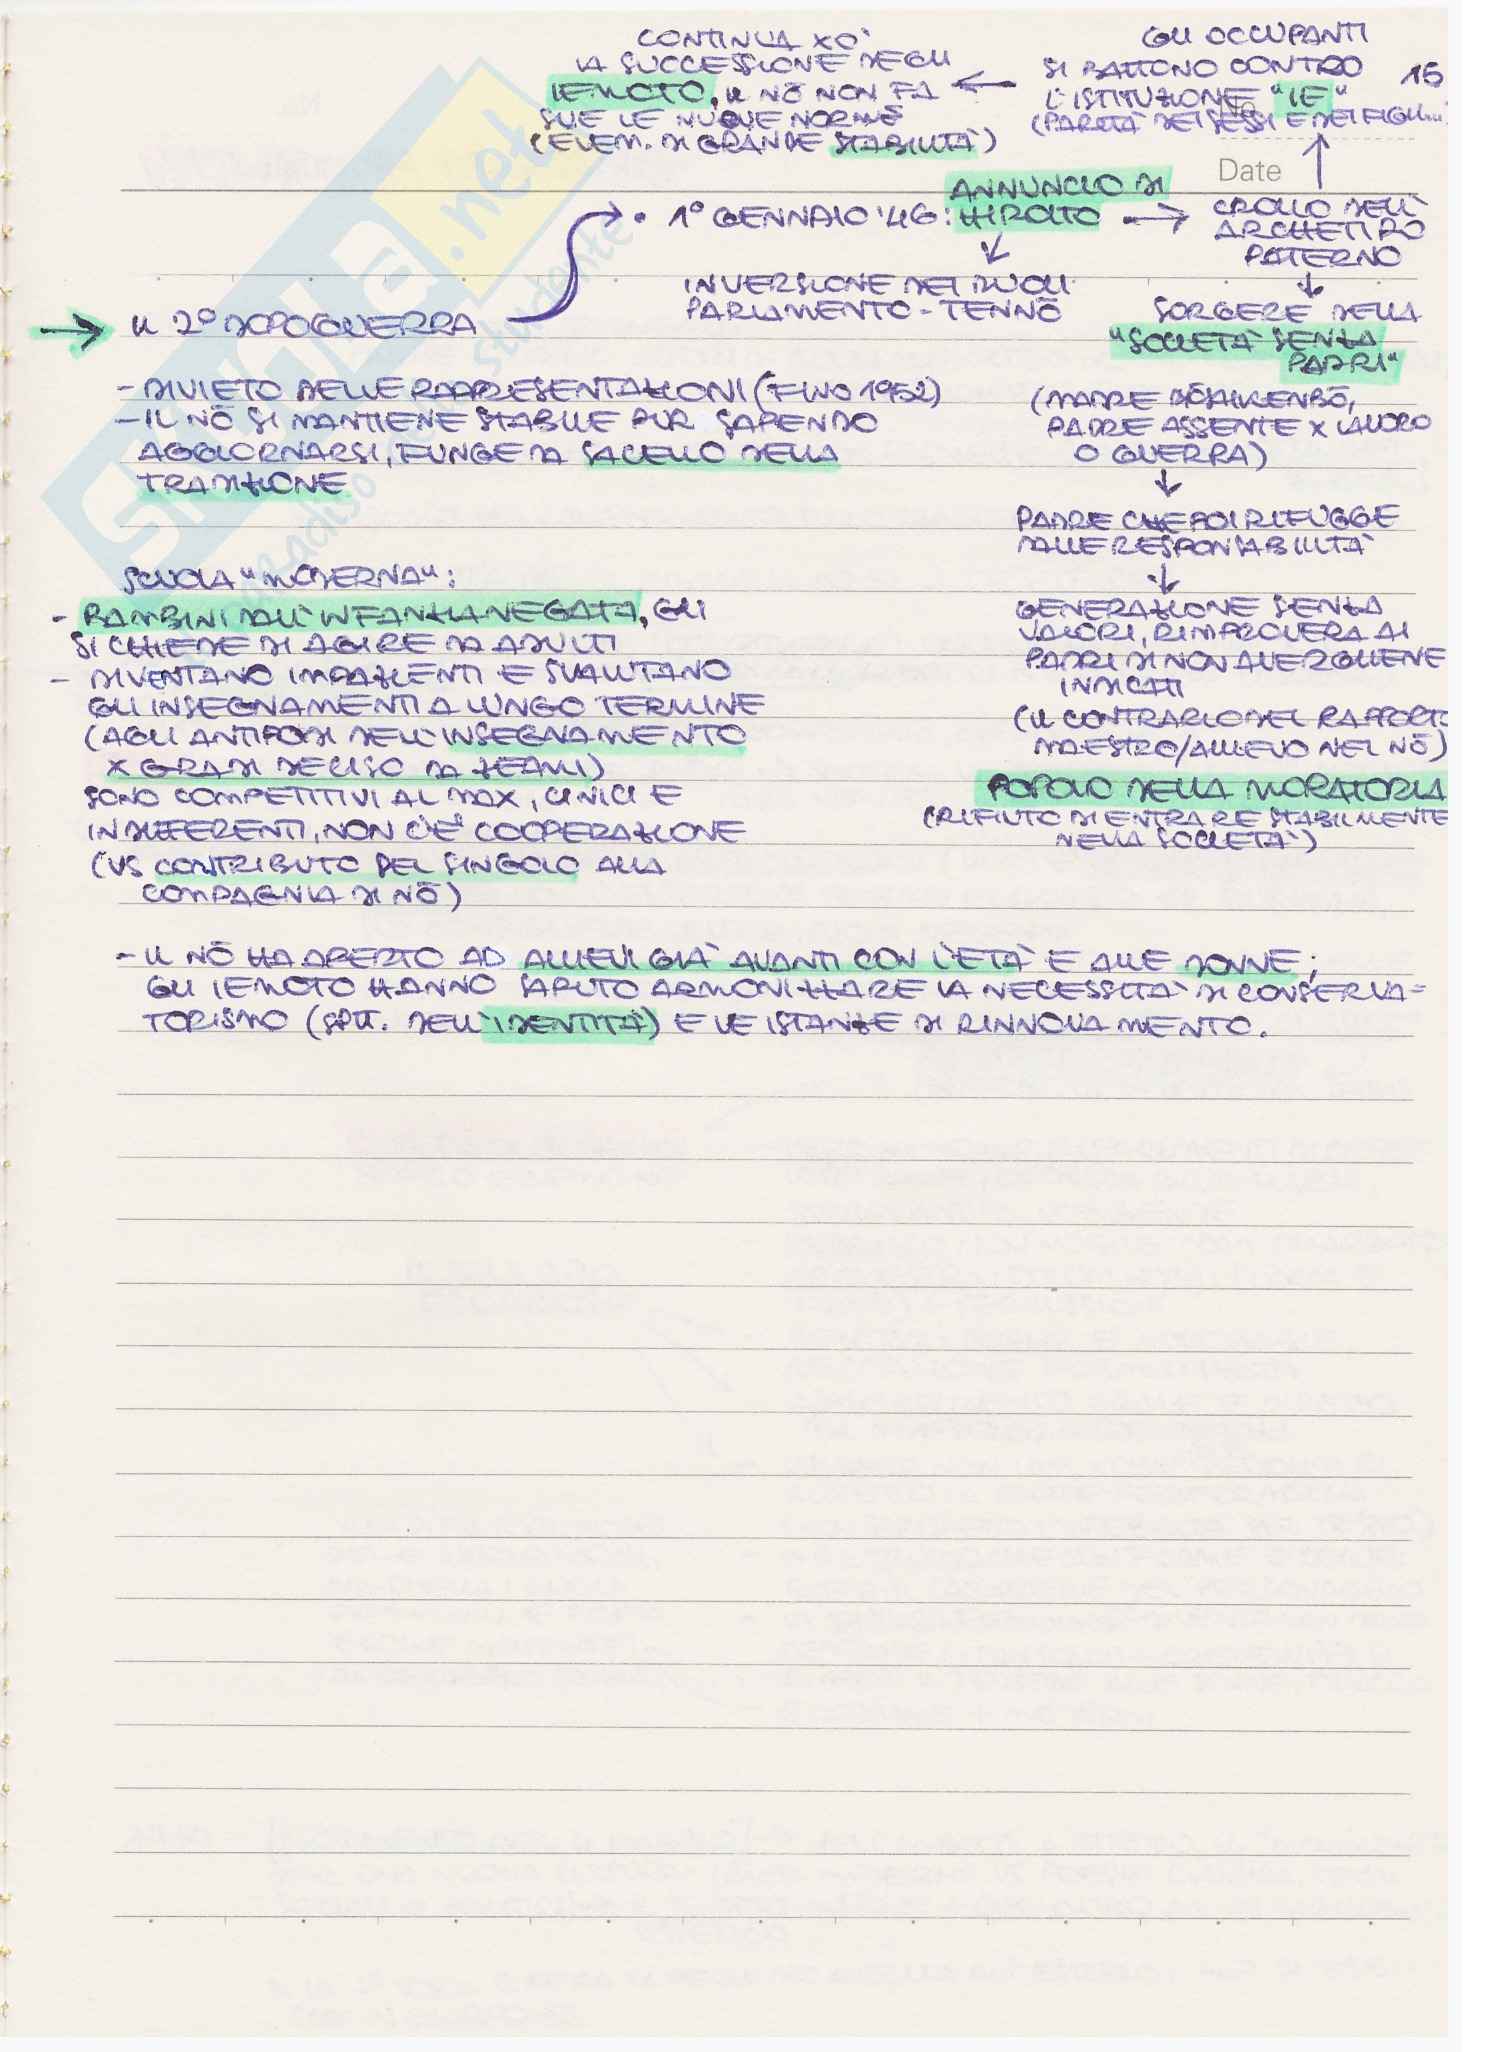 CONTINUA XÒ
LA SUCCESSIONE DEGLI
IEMOTO, IL NŌ NON FA
SUE LE NUOVE NORME
(ELEM. DI GRANDE STABILITÀ)
GLI OCCUPANTI
SI BATTONO CONTRO
L'ISTITUZIONE "IE"
(PARITÀ DEI SESSI E DEI FIGLI...
15
No
Date
ANNUNCIO DI
• 1° GENNAIO '46: HIROITO
INVERSIONE DEI RUOLI
PARLAMENTO - TENNŌ
CROLLO DELL'
ARCHETIPO
PATERNO
SORGERE DELLA
"SOCIETÀ SENZA
PADRI"
(MADRE BŌSHIKENBŌ,
PADRE ASSENTE X LAVORO
O GUERRA)
PADRE CHE POI RIFUGGE
DALLE RESPONSABILITÀ
GENERAZIONE SENZA
VALORI, RIMPROVERA AI
PADRI DI NON AVERGLIENE
INDICATI
(IL CONTRARIO DEL RAPPORTO
MAESTRO/ALLIEVO NEL NŌ)
POPOLO DELLA MORATORIA
(RIFIUTO DI ENTRARE STABILMENTE
NELLA SOCIETÀ)
IL 2° DOPOGUERRA
- DIVIETO DELLE RAPPRESENTAZIONI (FINO 1952)
- IL NŌ SI MANTIENE STABILE PUR SAPENDO
AGGIORNARSI, FUNGE DA SACELLO DELLA
TRADIZIONE
SCUOLA "MODERNA":
- BAMBINI DALL'INFANZIA NEGATA, GLI
SI CHIEDE DI AGIRE DA ADULTI
- DIVENTANO IMPAZIENTI E SVALUTANO
GLI INSEGNAMENTI A LUNGO TERMINE
(AGLI ANTIPODI DELL'INSEGNAMENTO
X GRADI DECISO DA ZEAMI)
SONO COMPETITIVI AL MAX, CINICI E
INDIFFERENTI, NON C'È COOPERAZIONE
(VS CONTRIBUTO DEL SINGOLO ALLA
COMPAGNIA DI NŌ)
- IL NŌ HA APERTO AD ALLIEVI GIÀ AVANTI CON L'ETÀ E ALLE DONNE;
GLI IEMOTO HANNO SAPUTO ARMONIZZARE LA NECESSITÀ DI CONSERVA=
TORISMO (SPTT. DELL'IDENTITÀ) E LE ISTANZE DI RINNOVAMENTO.
SKUOLA.net
paradiso dello studente